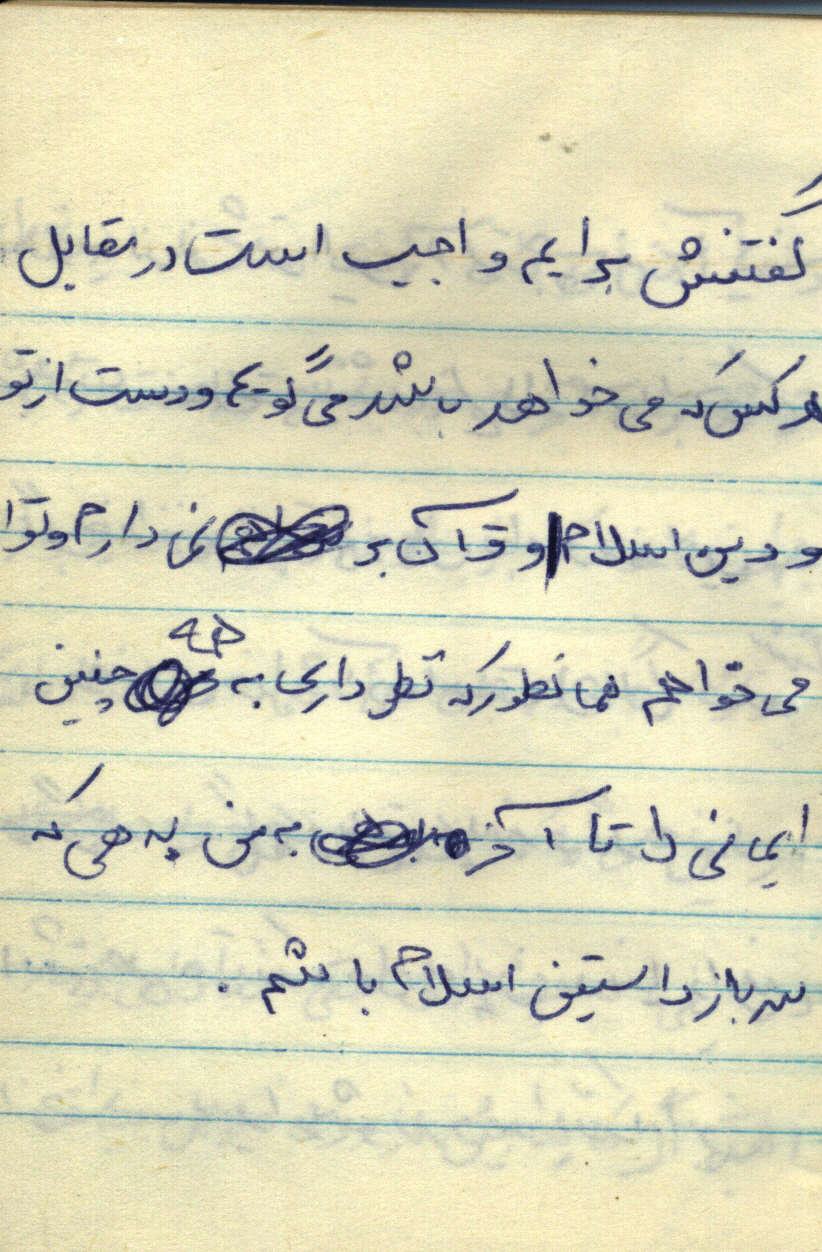 گفتنش برایم واجب است در مقابل
هر کس که می خواهد باشد می گویم و دست از تو
و دین اسلام و قرآن بر نمی دارم و توا
می خواهم همانطور که نظر داری به همه چنین
ایمانی را تا آخر به من به هی که
سرباز راستین اسلام باشم .